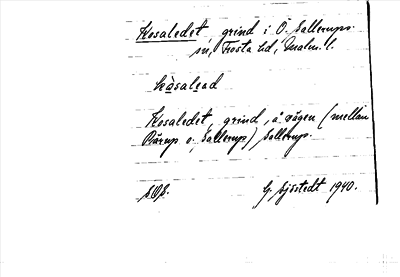 Kosaledet, grind i Ö. Sallerups
sn, Frosta hd, Malm. l.
kòsalead
Kosaledet, grind, å vägen (mellan
Rårup o. Sallerup) Sallerup.
G. Sjöstedt 1940.